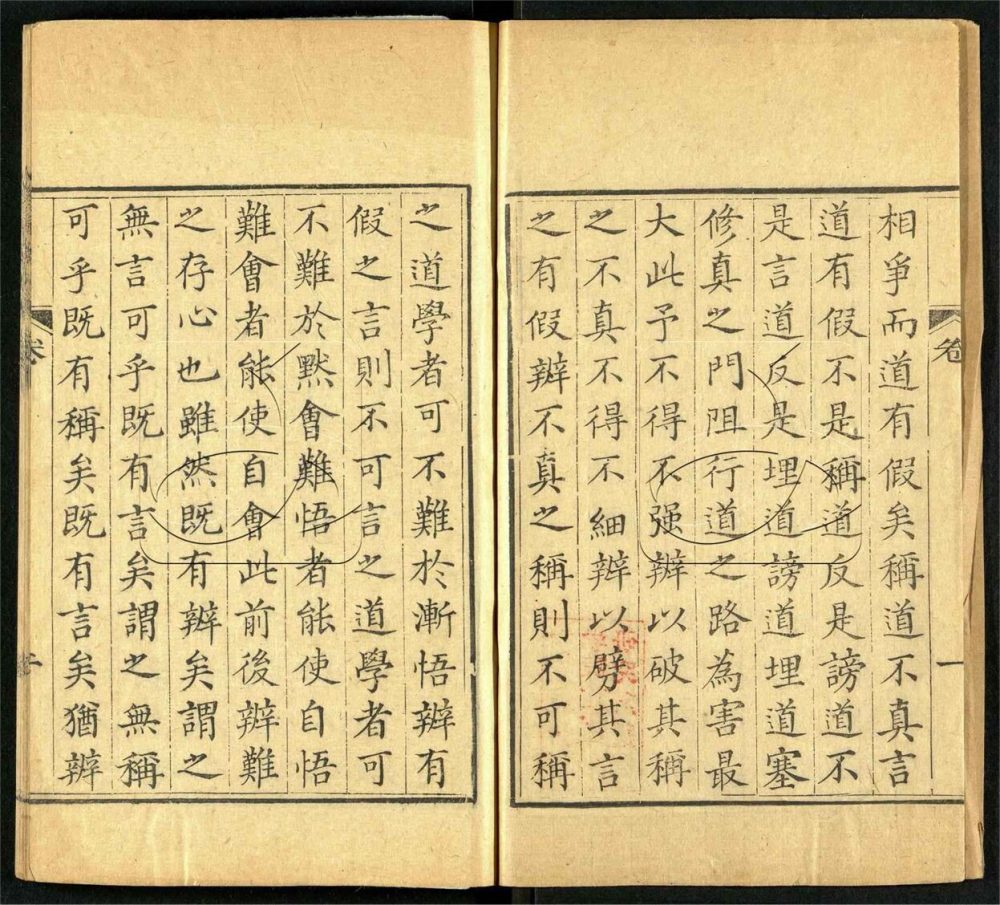 相爭而道有假矣稱道不真言
道有假不是稱道反是謗道不
是言道反是埋道謗道埋道塞
修真之門阻行道之路為害最
大此予不得不强辨以破其稱
之不真不得不細辨以劈其言
之有假辨不真之稱則不可稱
之道學者可不難於漸悟辨有
假之言則不可言之道學者可
不難於默會難悟者能使自悟
難會者能使自會此前後辨難
之存心也雖然既有辨矣謂之
無言可乎既有言矣謂之無稱
可乎既有稱矣既有言矣猶辨
卷
一